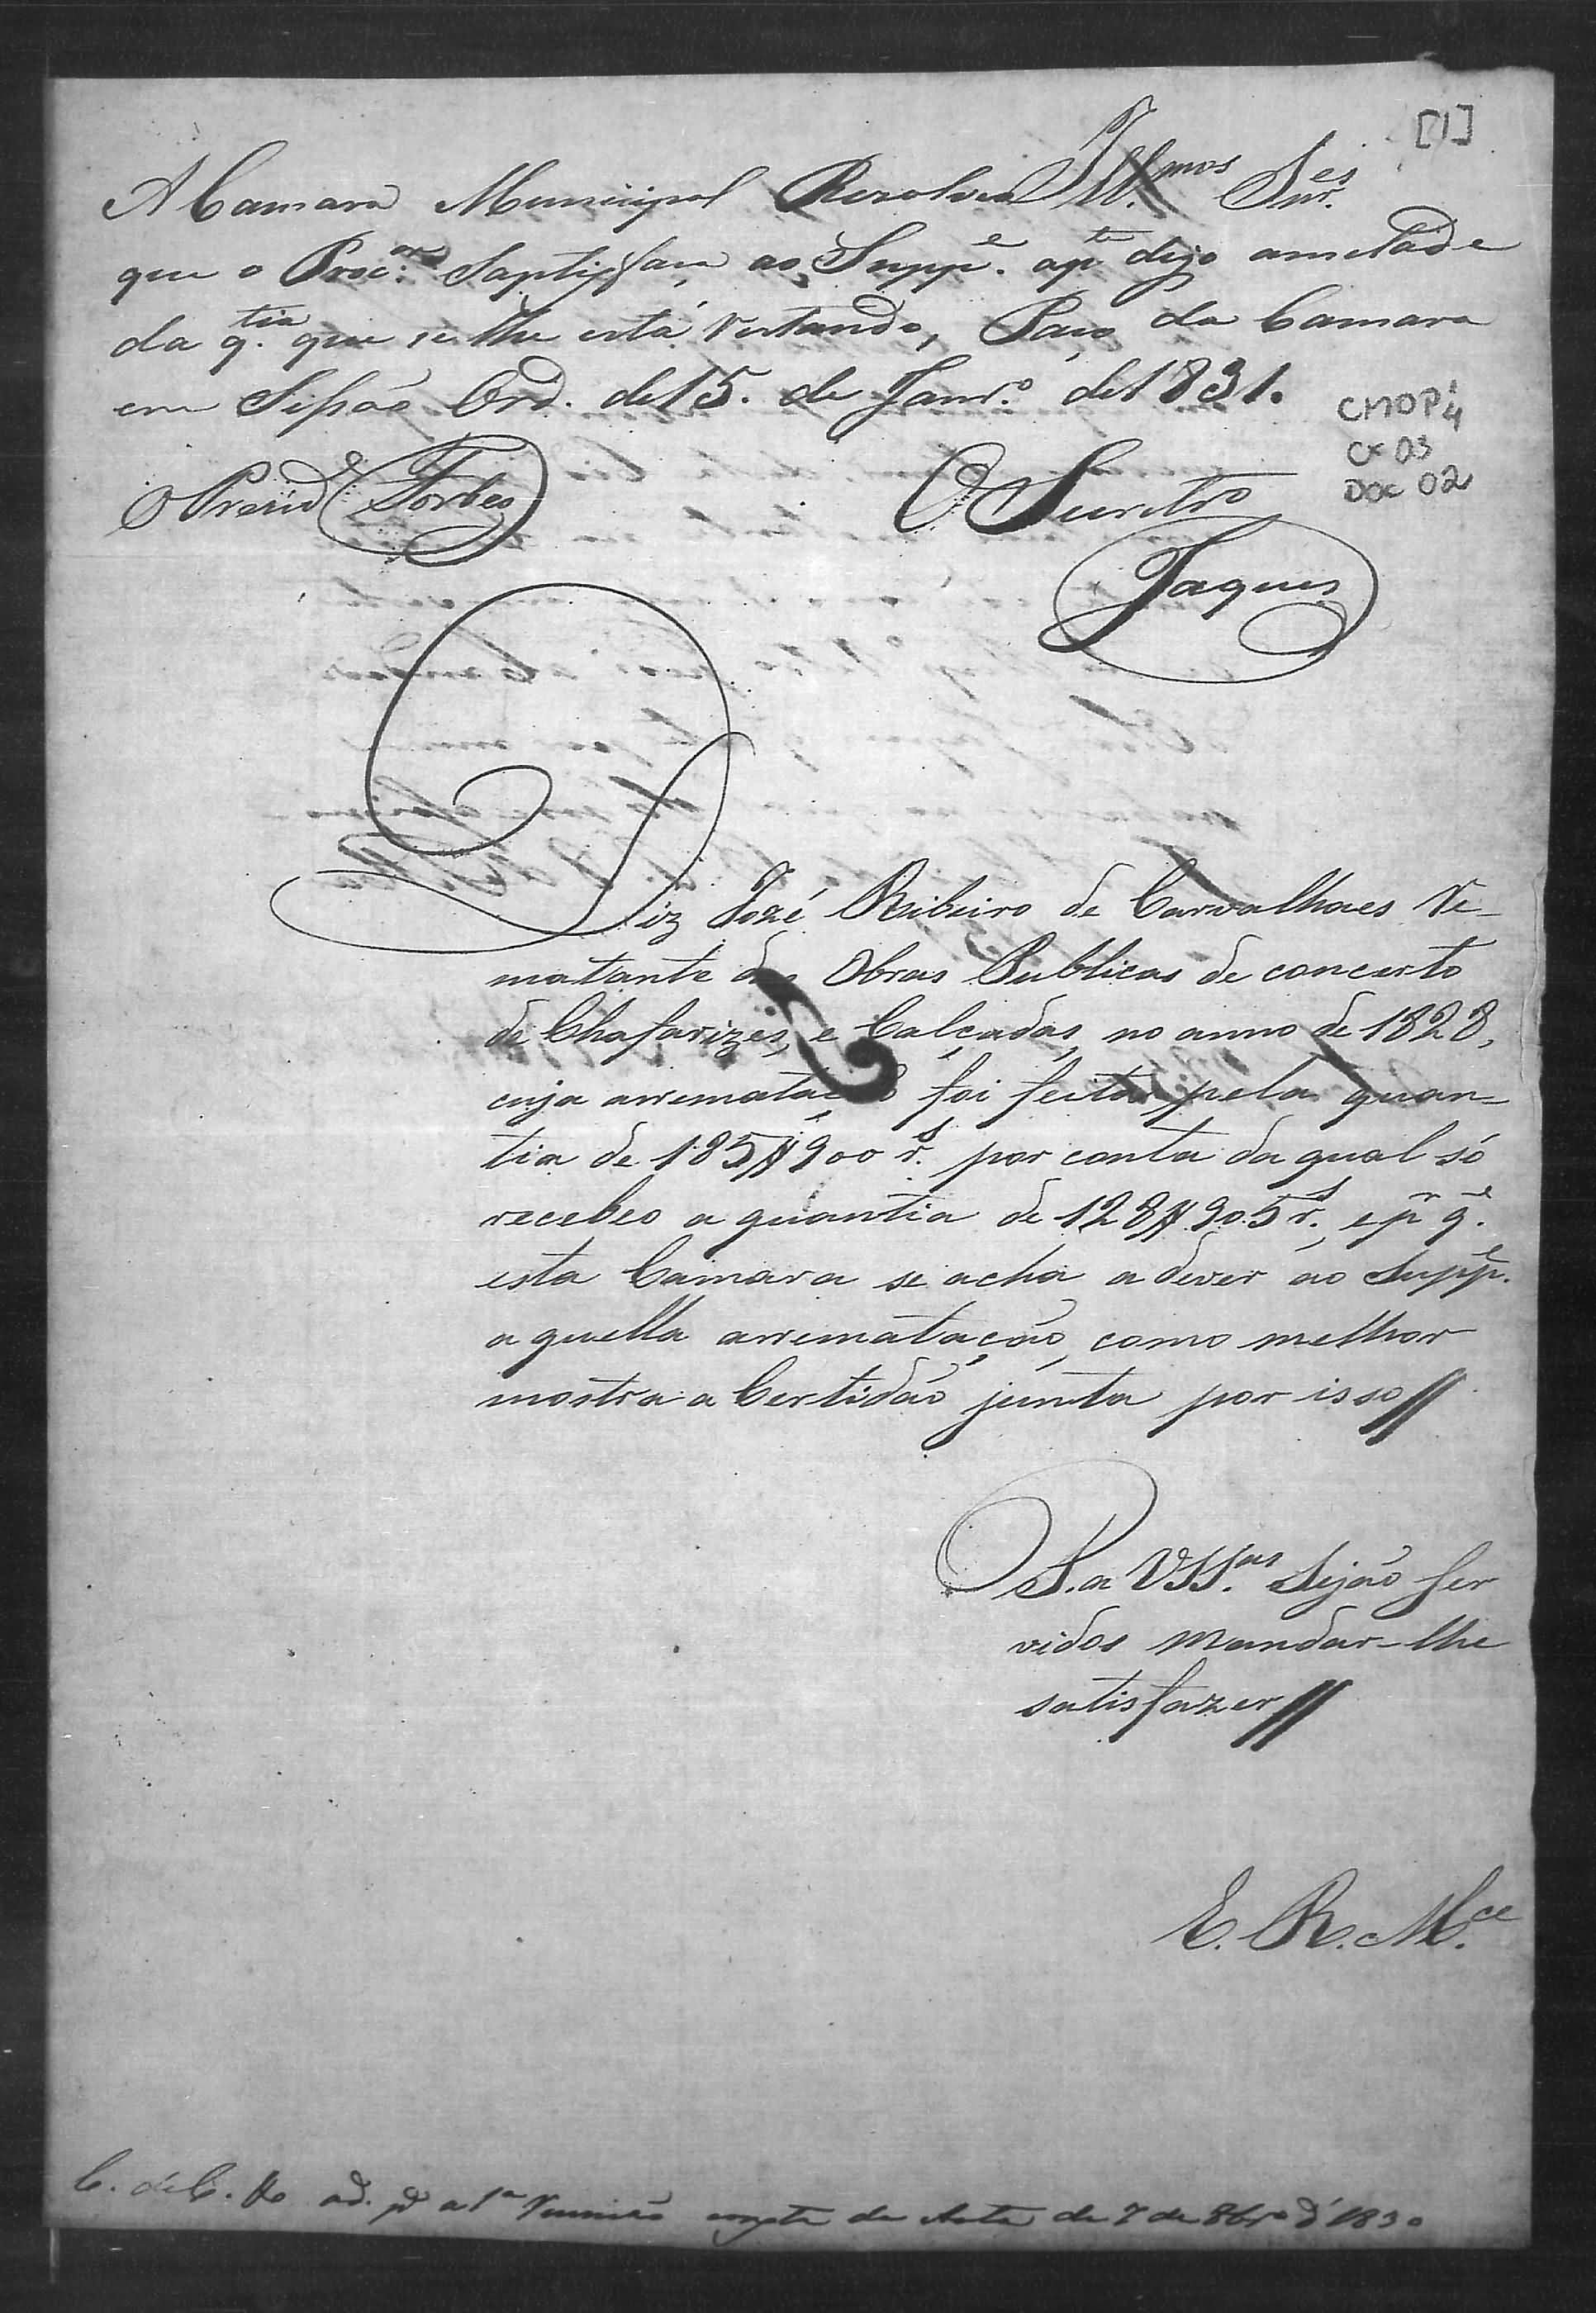 [1]
A Camara Municipal Rezolveo Ill.mos Snr.es
que o Proc.or Saptisfaça, ao Supp.e ap.te digo ametade
da q.tia que se lhe está restando, Paço da Camara
em Sessão Ord. de 15. de Janr.o de 1831.
O Presid.e Forbes
O Secretr.o
Jaques
CMOP 1/4
CX 03
DOC 02
Diz Jozé Ribeiro de Carvalhaes Re-
matante das Obras Publicas de concerto
de Chafarizes, e Calçadas, no anno de 1828,
cuja arrematação foi feita, pela quan-
tia de 185$900 r.s por conta da qual só
recebeo a quantia de 128$905 r.s, e pr q.e
esta Camara se acha a dever ao Supp.e
aquella arrematação, como melhor
mostra a Certidão junta por isso //
P. a VSS.as Sejão ser
vidos mandar-lhe
satisfazer //
E. R. M.ce
C. de C. ad. p.a a 1.a reunião consta da Acta de 7 de 8br.o d' 1830